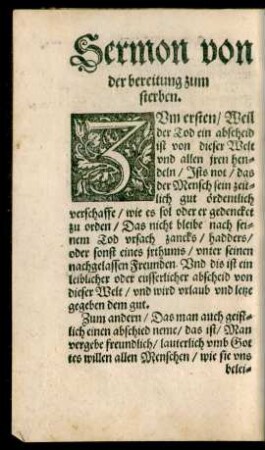 Sermon von
der bereitung zum
sterben.
ZVm ersten / Weil
der Tod ein abscheid
ist von dieser Welt
vnd allen jren hen-
deln / Ists not / das
der Mensch sein zeit-
lich gut ördentlich
verschaffe / wie es sol oder er gedencket
zu orden / Das nicht bleibe nach sei-
nem Tod vrsach zancks / hadders /
oder sonst eines jrthums / vnter seinen
nachgelassen Freunden. Vnd dis ist ein
leiblicher oder eusserlicher abscheid von
dieser Welt / vnd wird vrlaub vnd letze
gegeben dem gut.
Zum andern / Das man auch geist-
lich einen abschied neme / das ist / Man
vergebe freundlich / lauterlich vmb Got
tes willen allen Menschen / wie sie vns
belei-